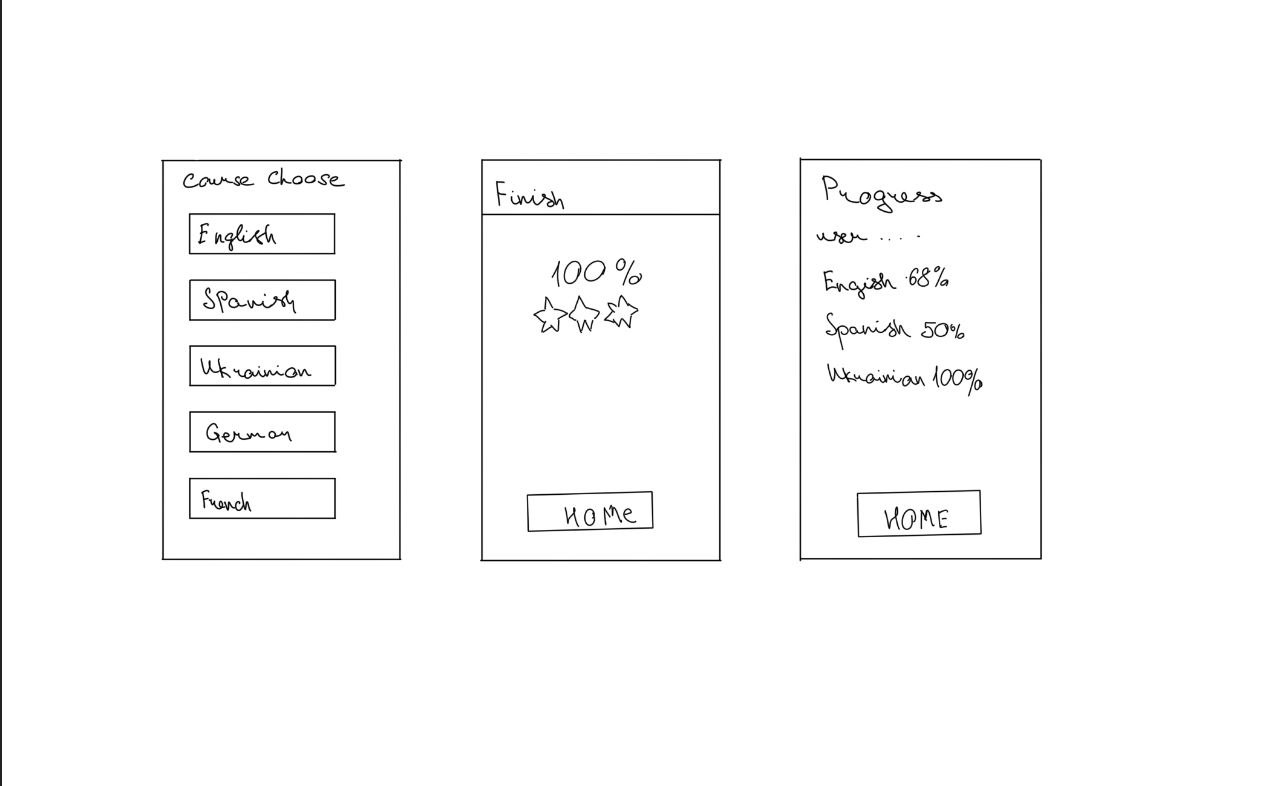 Course Choose
English
Spanish
Ukrainian
German
French
Finish
100%
HOMe
Progress
user ....
Engish 68%
Spanish 50%
Ukrainian 100%
HOME